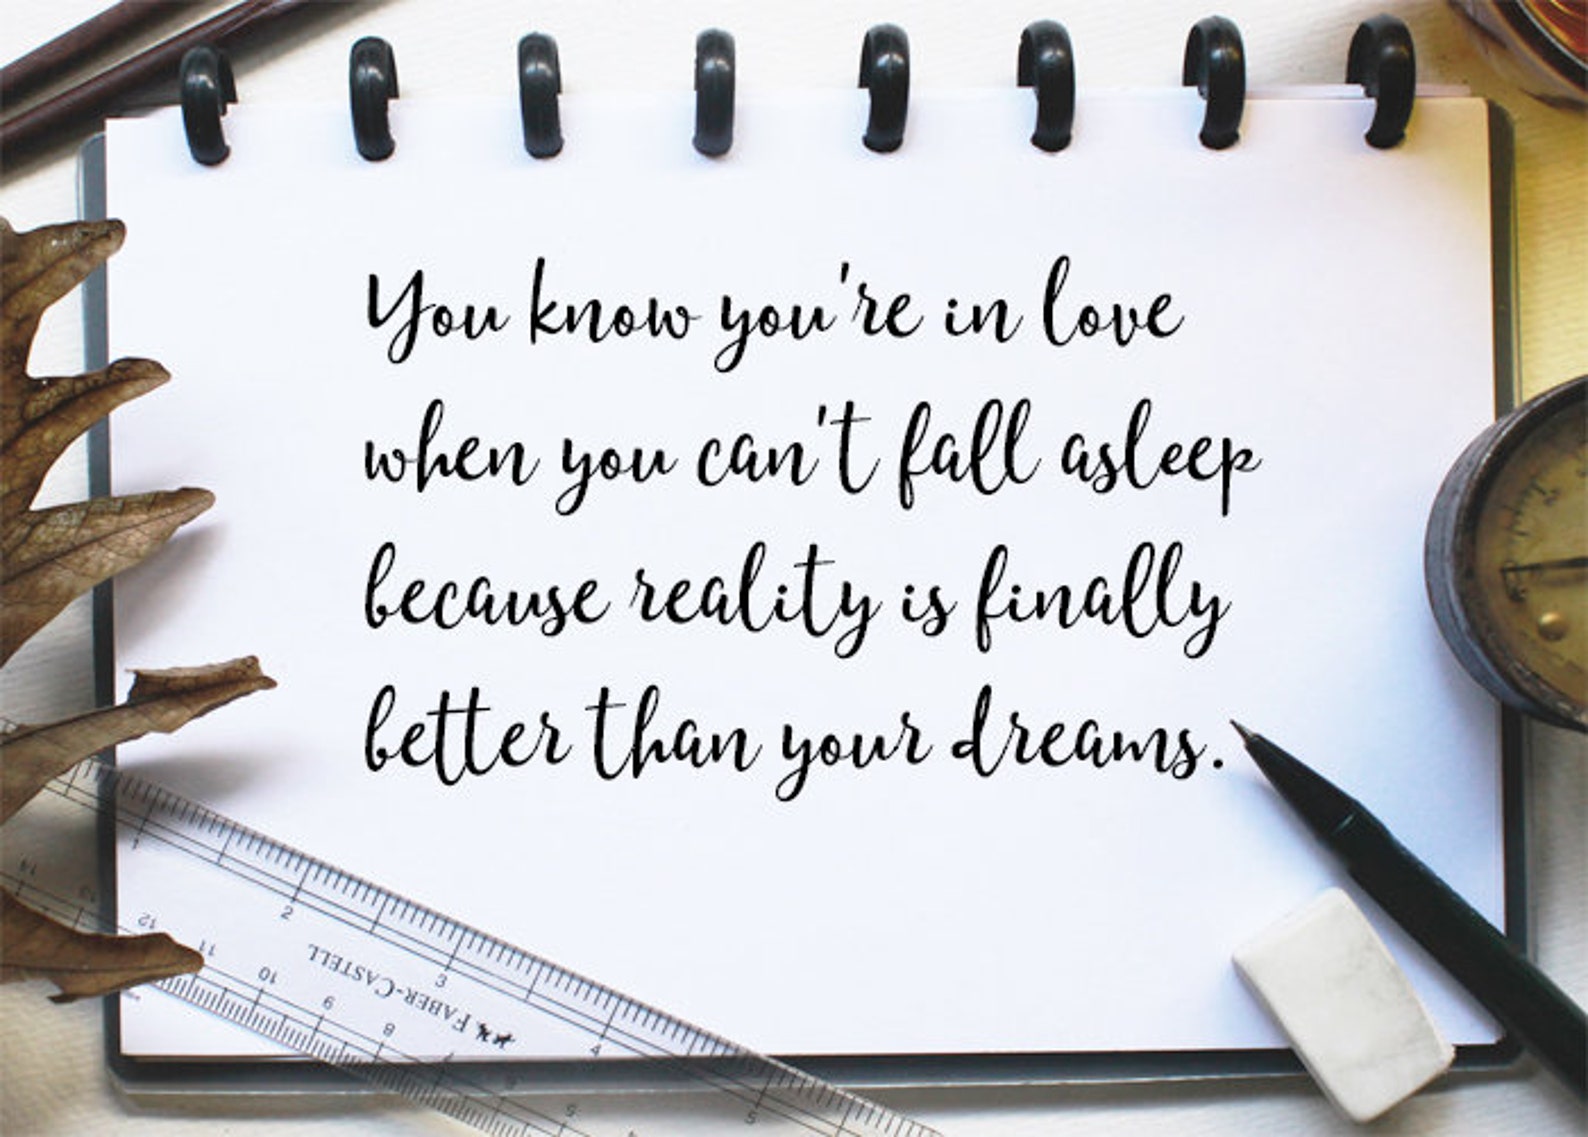 You know you're in love
when you can't fall asleep
because reality is finally
better than your dreams.
1
2
3
4
5
14
13
12
11
10
9
8
FABER-CASTELL